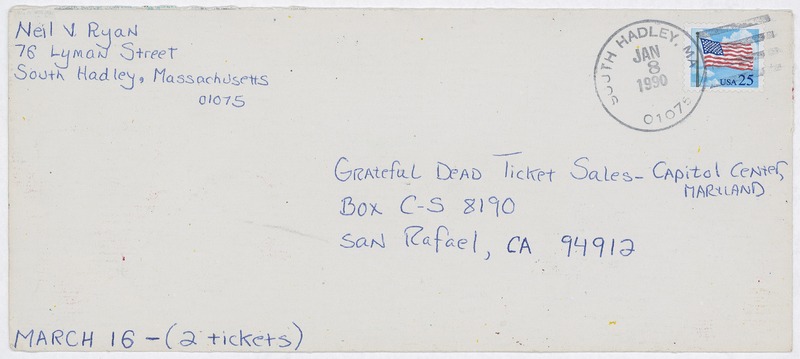 Neil V. Ryan
76 Lyman Street
South Hadley, Massachusetts
01075
SOUTH HADLEY, MA
JAN
8
1990
01075
USA 25
Grateful Dead Ticket Sales - Capitol Center,
MARYLAND
Box C-S 8190
San Rafael, CA 94912
MARCH 16 - (2 tickets)